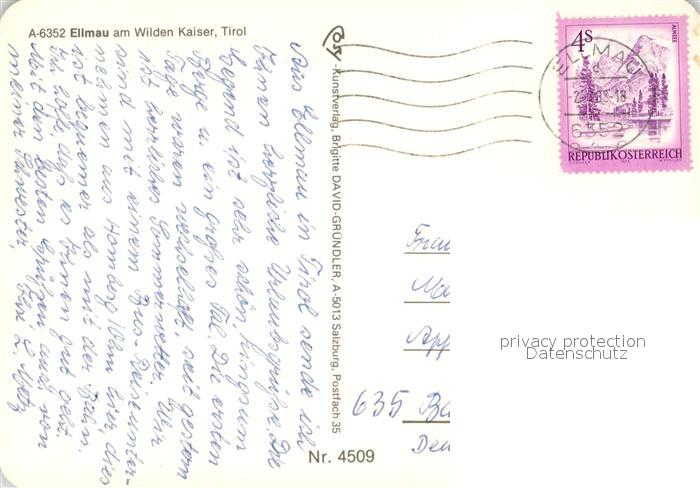 A-6352 Ellmau am Wilden Kaiser, Tirol
Aus Ellmau in Tirol sende ich
Ihnen herzliche Urlaubsgrüße. Die
Gegend ist sehr schön, ringsum
Berge u. ein großes Tal. Die ersten
Tage waren neblig, seit gestern
ist herrliches Sommerwetter. Wir
sind mit einem Bus-Reiseunter-
nehmen aus Homburg hier, dies
ist bequemer als mit der Bahn.
Ich hoffe, daß es Ihnen gut geht.
Mit den besten Grüßen, auch von
meiner Schwester, Ihre
Cosy-Kunstverlag, Brigitte DAVID-GRÜNDLER, A-5013 Salzburg, Postfach 35
Nr. 4509
4S
ALMSEE
REPUBLIK ÖSTERREICH
ELLMAU
6352
Frau
App
635 Ba
Deu
privacy protection
Datenschutz